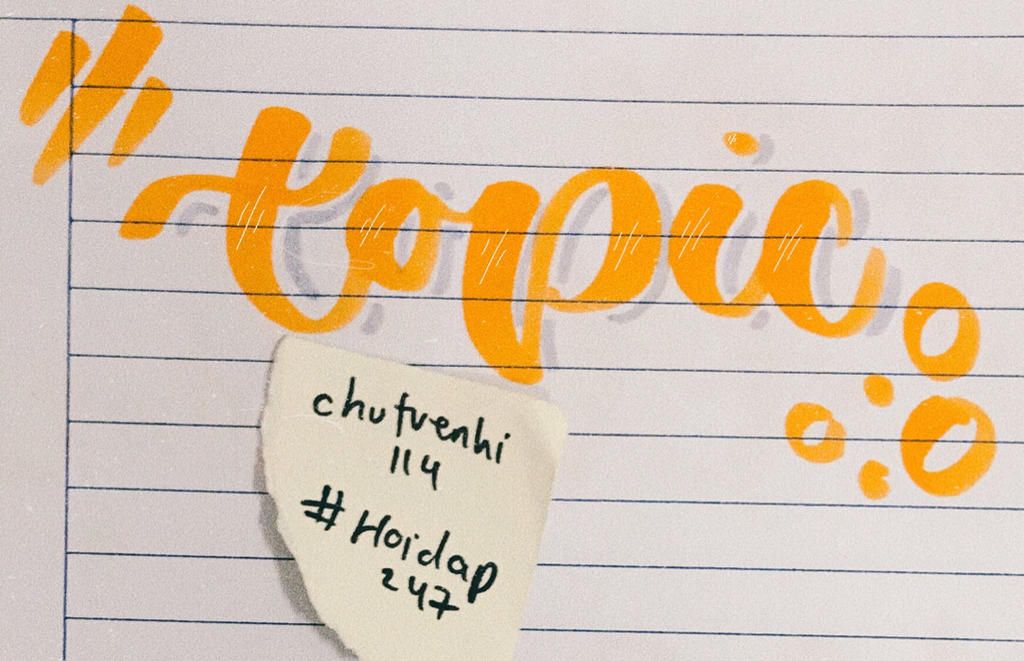 topic
chutuenhi
114
#Hoidap
247